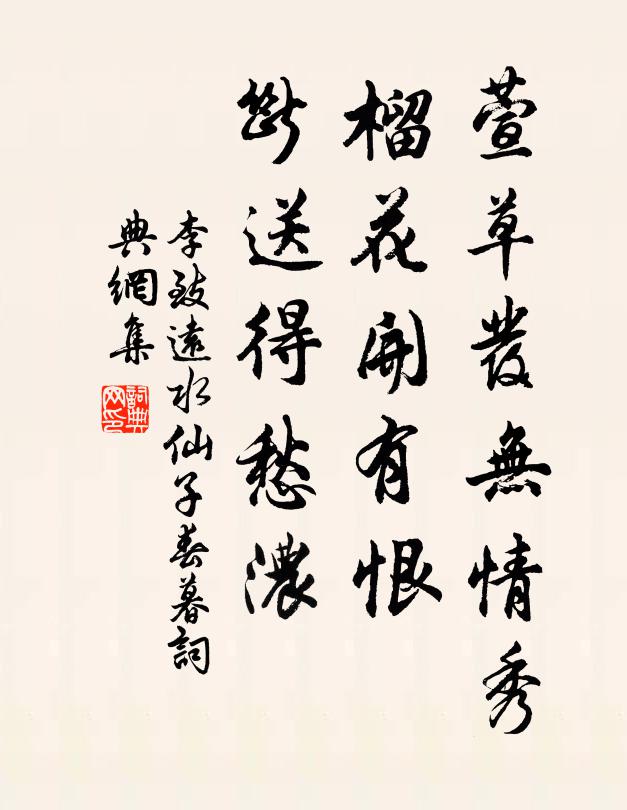 萱草發無情秀
榴花開有恨
斷送得愁濃
李致遠水仙子春暮詞
典網集
詞典
网印